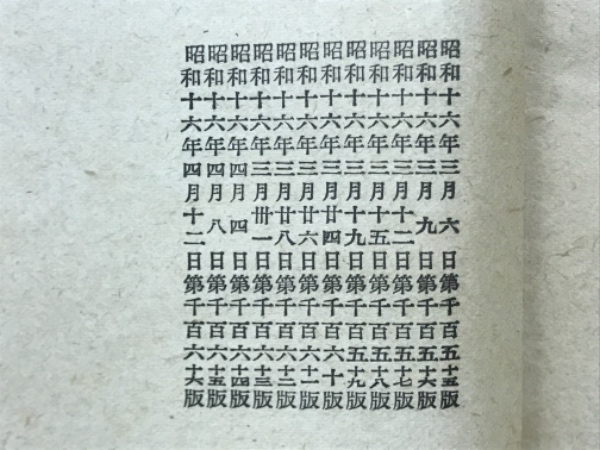 昭和十六年三月六日第千百五十五版
昭和十六年三月九日第千百五十六版
昭和十六年三月十二日第千百五十七版
昭和十六年三月十五日第千百五十八版
昭和十六年三月十九日第千百五十九版
昭和十六年三月廿四日第千百六十版
昭和十六年三月廿六日第千百六十一版
昭和十六年三月廿八日第千百六十二版
昭和十六年三月卅一日第千百六十三版
昭和十六年四月四日第千百六十四版
昭和十六年四月八日第千百六十五版
昭和十六年四月十二日第千百六十六版